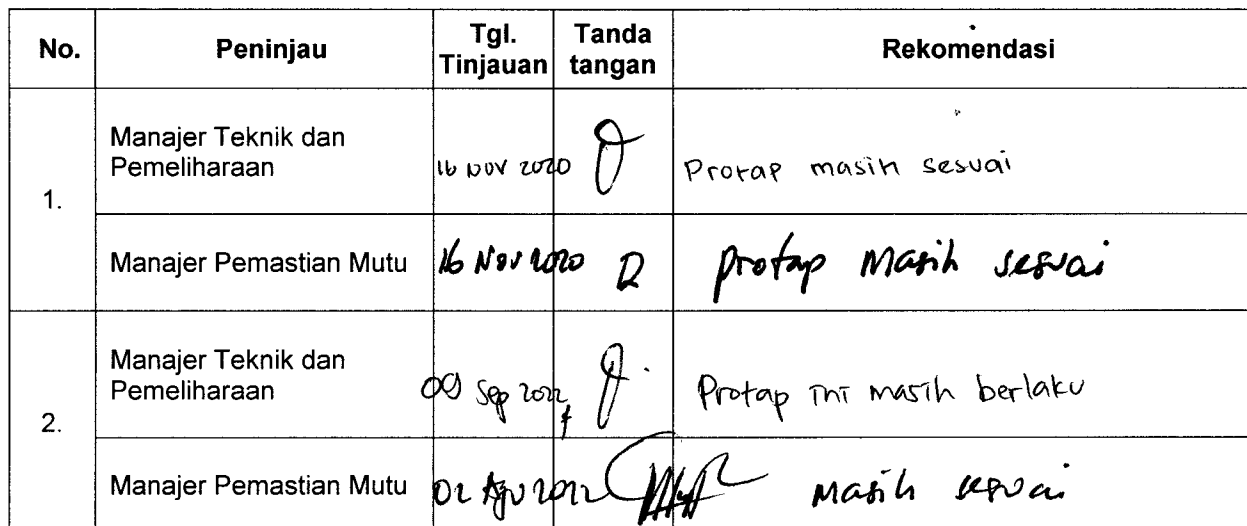 No. Peninjau Tgl. Tinjauan Tanda tangan Rekomendasi
1.
Manajer Teknik dan Pemeliharaan 16 NOV 2020 Protap masih sesuai
Manajer Pemastian Mutu 16 Nov 2020 protap masih sesuai
2.
Manajer Teknik dan Pemeliharaan 09 Sep 2022 Protap ini masih berlaku
Manajer Pemastian Mutu 02 Agu 2022 masih sesuai